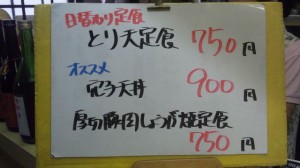 日替わり定食
とり天定食 750円
オススメ
穴子天丼 900円
厚切豚肉しょうが焼定食
750円